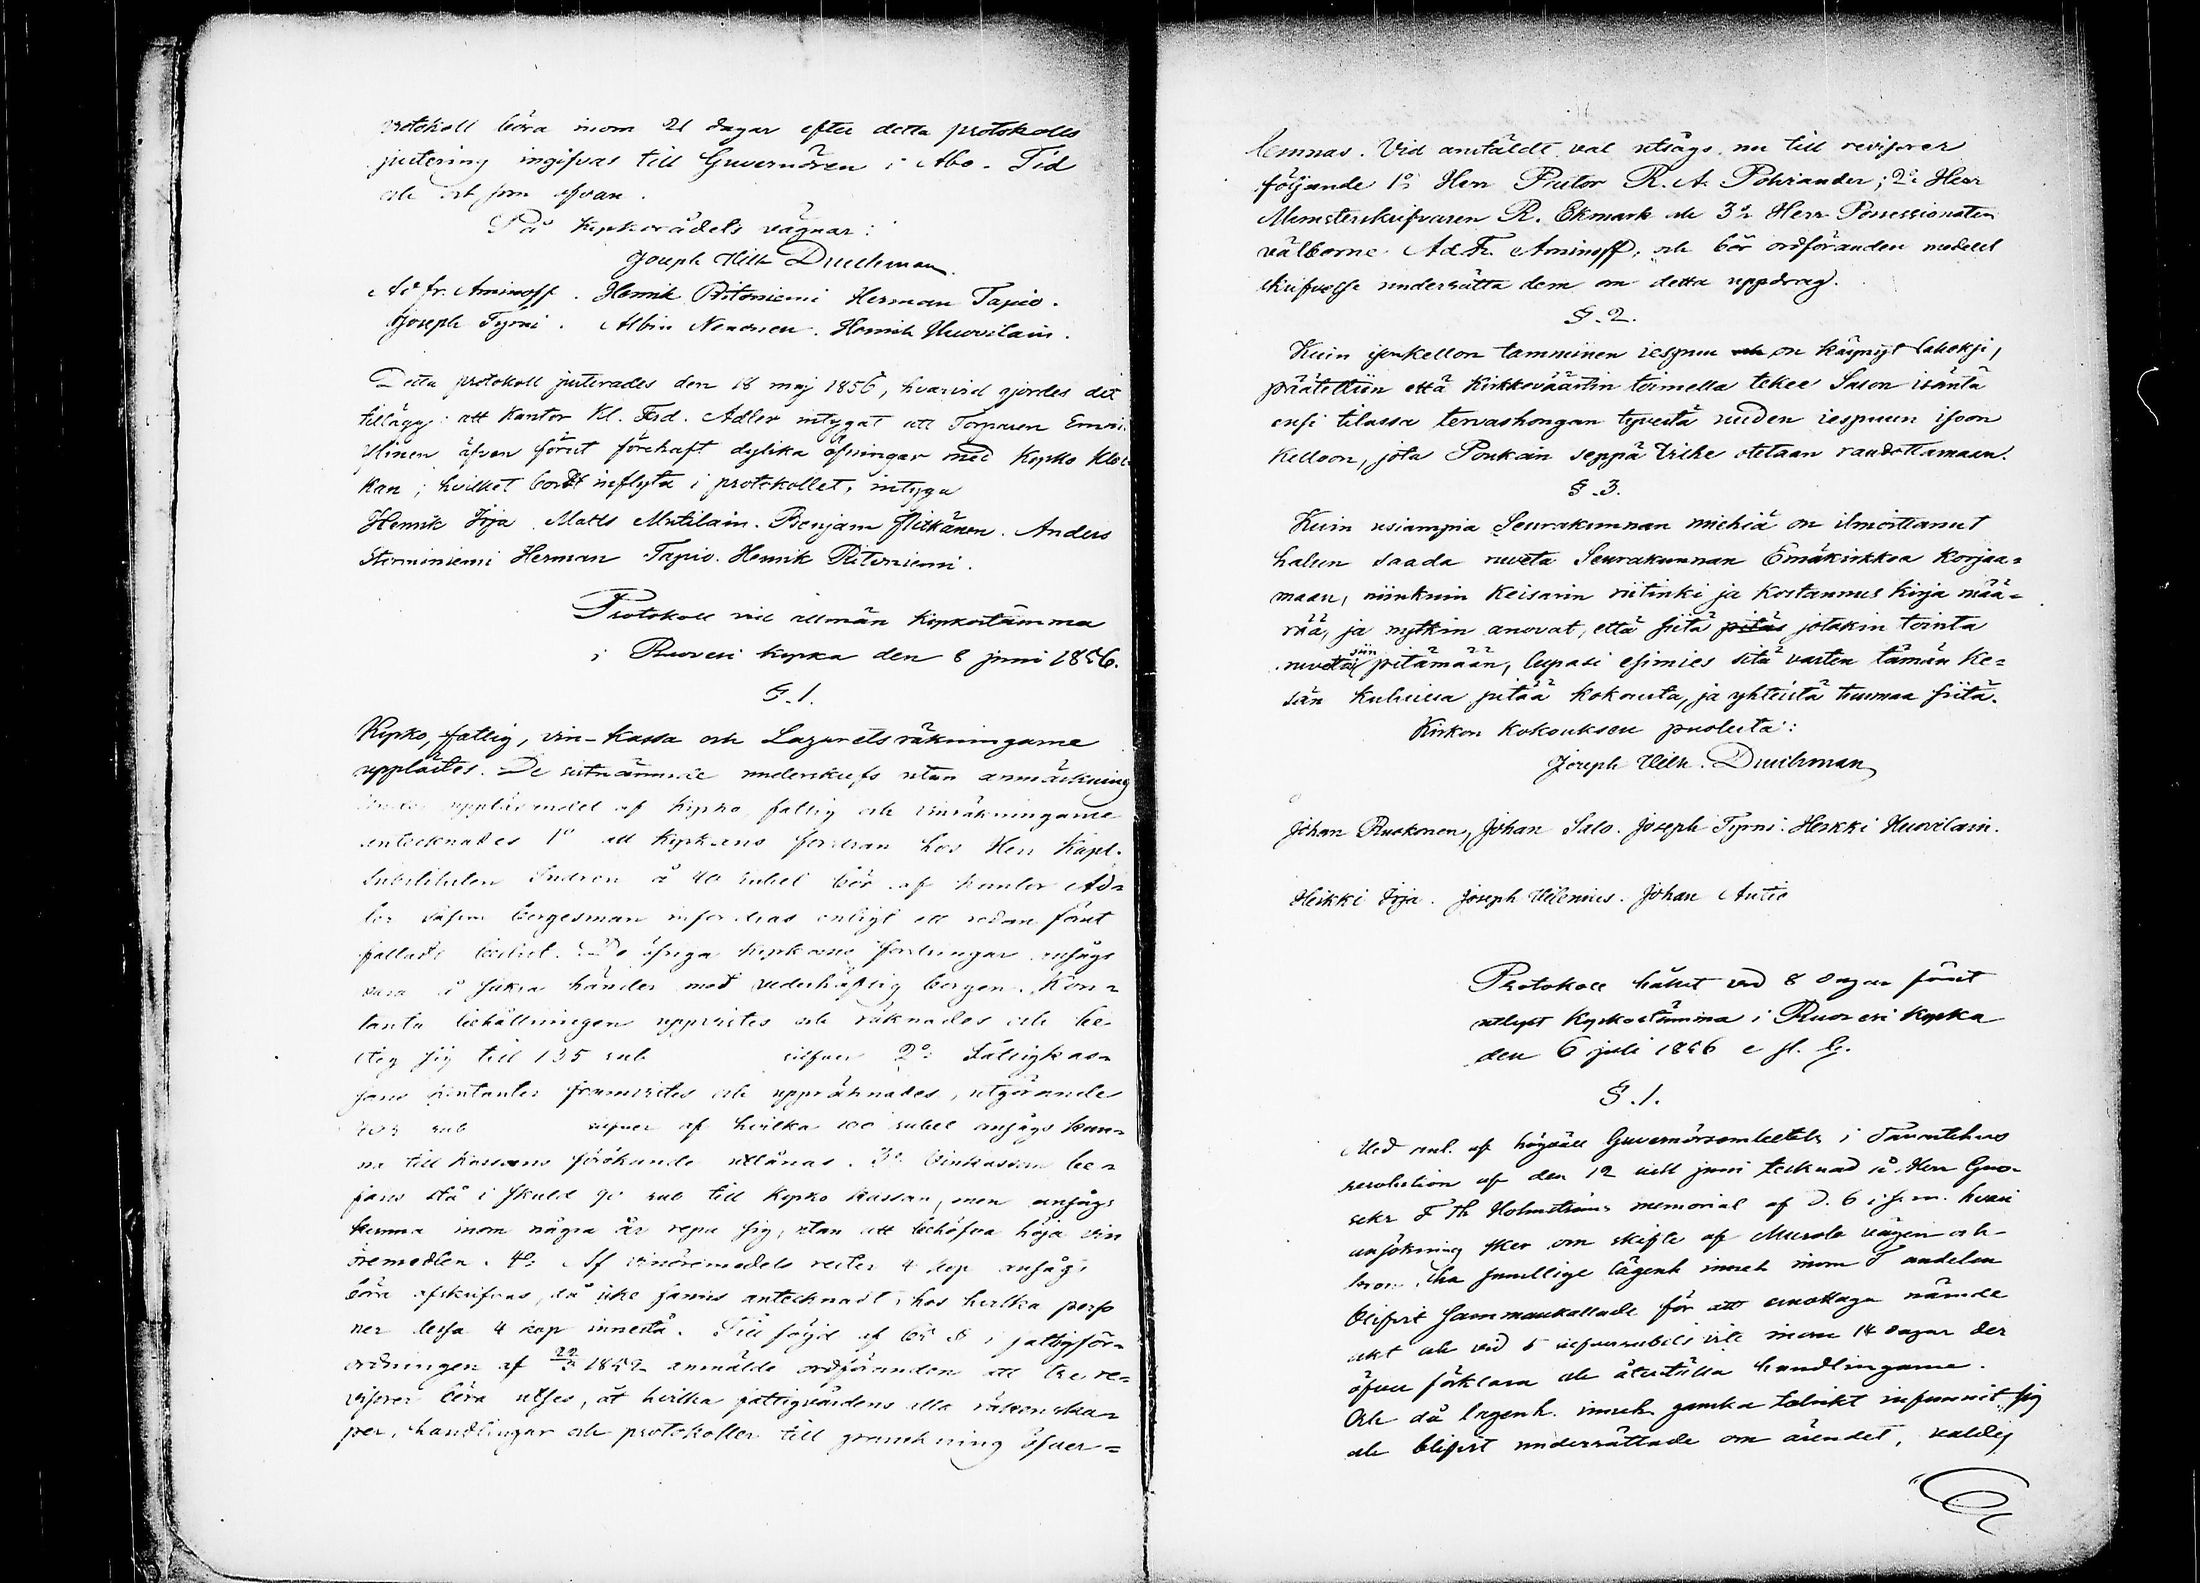 protokoll böra inom 21 dagar efter detta protokolls
justering ingifvas till Guvernören i Åbo. Tid
och ort som ofvan.
På kyrkorådets vägnar:
Joseph Wilh Druchman
Ad. fr. Aminoff. Henrik Ritoniemi Herman Tapio.
Joseph Tyrni. Albin Nenonen. Henrik Huovilain.
Detta protokoll justerades den 18 maj 1856, hvarvid gjordes det
tillägg: att kantor Kl. Ferd. Adler intygat att Torparen
äfven förut förehaft dylika öfningar med kyrko kloc
kan; hvilket bordt inflyta i protokollet, intyga
Henrik Irja. Matts Mutilain. Benjam Pitkänen. Anders
Herman Tapio. Henrik Ritoniemi.
Protokoll vid allmän kyrkostämma
i Ruovesi kyrka den 8 juni 1856.
§. 1.
Kyrko, fattig, vin-kassa och Lazaretsräkningarne
upplästes. De sistnämnde underskrefs utan anmärkning
Under uppläsandet af kyrko, fattig och vinräkningarne
antecknades 1o att kyrkans fordran hos Herr Kapl.
Substituten Indren å 40 rubel bör af kantor Ad=
ler såsom borgesman infordras enligt ett redan förut
fattadt beslut. De öfriga kyrkans fordringar ansågs
vara i säkra händer med vederhäftig borgen. Kon=
tanta behållningen uppvistes och räknades och be
steg sig till 135 rub silfver 2o: Fattigkas=
sans kontanter framvistes och uppräknades, utgörande
rub silfver af hvilka 100 rubel ansågs kun=
na till kassans förökande utlånas. 3o. Vinkassan be=
fans stå i skuld 90 rub till kyrko kassan, men ansågs
kunna inom några år repa sig, utan att behöfva höja vin
öremedlen. 4o: Af vinöremedels rester 4 kop ansågs
böra afskrifvas, då icke fanns antecknadt, hos hvilka perso
ner dessa 4 kop innestå. Till följd af 65 § i fattigför=
ordningen af 22/3 1852 anmälde ordföranden att tre re=
visorer böra utses, åt hvilka fattigvårdens alla räkenska=
per, handlingar och protokoller till granskning öfver=
lemnas. Vid anstäldt val utsågs nu till revisorer
följande 1o; Herr Pastor R. A. Pohjander; 2o: Herr
Mönsterskrifvaren R. Ekmark och 3o: Herr Possessionaten
välborne Ad. Fr. Aminoff, och bör ordföranden medelst
skrifvelse underrätta dem om detta uppdrag.
§. 2.
Kuin isonkellon tamminen iespuu on käynyt lahoksi,
päätettiin että Kirkkoväärtin toimella tekee Salon isäntä
ensi tilassa tervashongan tyvestä uuden iespuun isoon
kelloon, jota Poukan seppä Vihe otetaan raudottamaan.
§. 3.
Kuin usiampia Seurakunnan miehiä on ilmoittanut
halun saada ruveta Seurakunnan Emäkirkkoa korjaa=
maan, niinkuin Keisarin riitinki ja kostannus kirja mää=
rää, ja nytkin anovat, että siitä pitäs jotakin tointa
ruvettaisiin pitämään, lupasi esimies sitä varten tämän ke=
sän kuluessa pitää kokousta, ja yhteistä tuumaa siitä.
Kirkon kokouksen puolesta:
Joseph Wilh. Druchman
Johan Ruokonen, Johan Salo. Joseph Tyrni. Heikki Huovilain.
Heikki Irja. Joseph Vilenius. Johan Autio
Protokoll hållet vid 8 dagar förut
utlyst Kyrkostämma i Ruovesi kyrka
den 6 juli 1856 e fl. G.
§. 1.
Med anl. af högväll Guvernörsembetets i Tavastehus
resolution af den 12 sistl juni tecknad å Herr Guv.
sekr F Th Holmströms memorial af d. 6 i s. m. hvari
ansökning sker om skifte af Murole vägen och
bron, ha samtlige lägenh inneh inom § andelen
blifvit sammankallade för att emottaga nämde
akt och vid 5 silfverrubels vite inom 14 dagar der
öfver förklara och återställa handlingarne.
Och då lägenh. inneh. ganska talrikt infunnit sig
och blifvit underrättade om ärendet, valdes